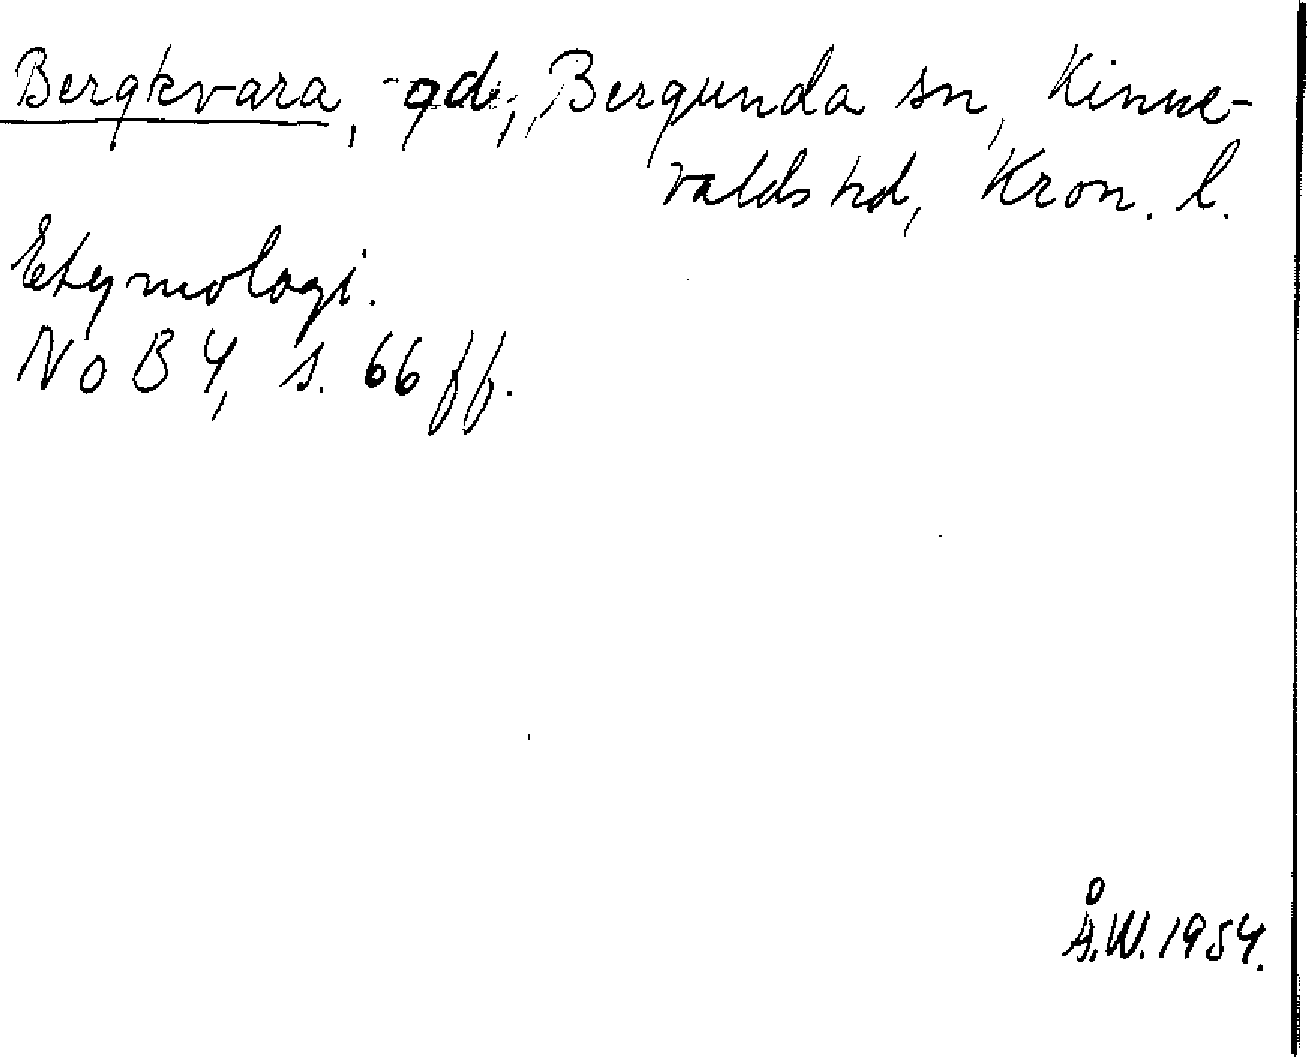 Bergkvara, gd, Bergunda sn, Kinne-
valds hd, Kron. l.
Etymologi.
NoB 4, s. 66 ff.
Å.W. 1954.